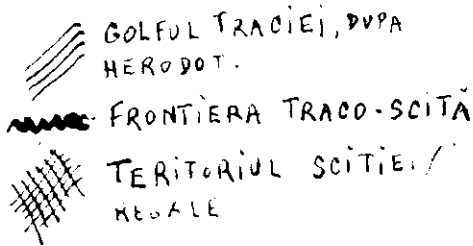 GOLFUL TRACIEI, DUPA
HERODOT.
FRONTIERA TRACO-SCITĂ
TERITORIUL SCITIEI
REGALE